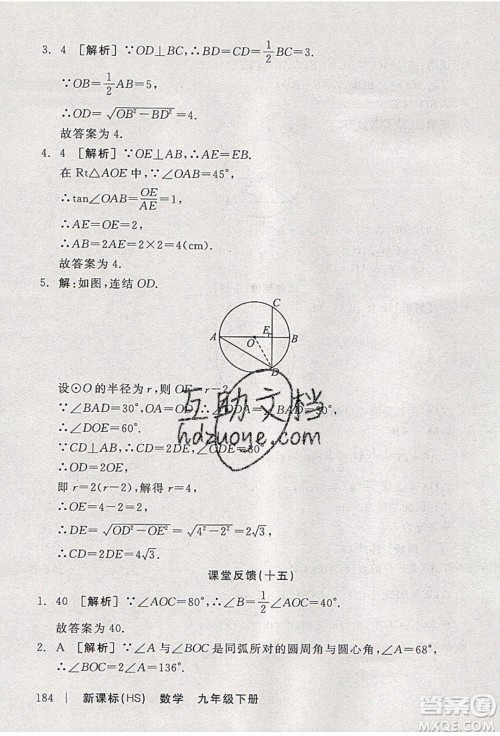 3. 4 [解析]∵OD⊥BC,∴BD=CD=1/2BC=3.
∵OB=1/2AB=5,
∴OD=√(OB²-BD²)=4.
故答案为4.
4. 4 [解析]∵OE⊥AB,∴AE=EB.
在Rt△AOE中,∵∠OAB=45°,
∴tan∠OAB=OE/AE=1,
∴AE=OE=2,
∴AB=2AE=2×2=4(cm).
故答案为4.
5. 解:如图,连结OD.
C
A O E B
D
设⊙O的半径为r,则OE=r-2.
∵∠BAD=30°,OA=OD,∴∠ODA=∠BAD=30°,
∴∠DOE=60°.
∵CD⊥AB,∴CD=2DE,
∴OD=2OE,
即r=2(r-2),解得r=4,
∴OE=4-2=2,
∴DE=√(OD²-OE²)=√(4²-2²)=2√3,
∴CD=2DE=4√3.
课堂反馈(十五)
1. 40 [解析]∵∠AOC=80°,∴∠B=1/2∠AOC=40°.
故答案为40.
2. A [解析]∵∠A与∠BOC是同弧所对的圆周角与圆心角,
∴∠BOC=2∠A=136°.
184 | 新课标(HS) 数学 九年级下册
互助文档
hdzuoye.com